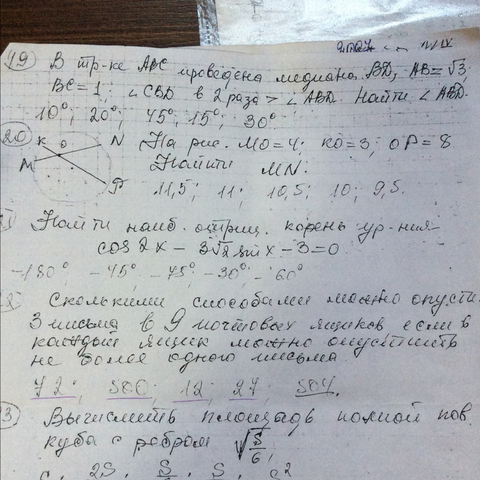 19 В тр-ке ABC проведена медиана BD, AB = √3;
BC=1; ∠CBD в 2 раза > ∠ABD. Найти ∠ABD.
10°; 20°; 45°; 15°; 30°
20 На рис. MO=4; KO=3; OP=8
K O N
M
P
Найти MN.
11,5; 11; 10,5; 10; 9,5.
Найти наиб. отриц. корень ур-ния
cos 2x - 3√2 sin x - 3=0
-180° -45° -75° -30° -60°
2 Сколькими способами можно опусти
3 письма в 9 почтовых ящиков если в
каждый ящик можно опустить
не более одного письма
72; 500; 12; 27; 504.
3 Вычислить площадь полной пов
куба с ребром √S/6;
2S S S c²